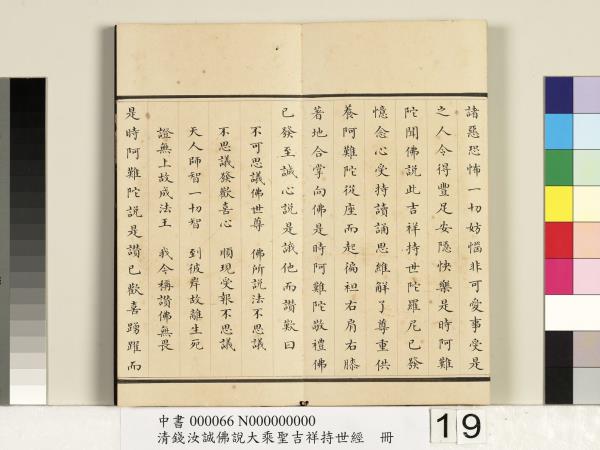 諸惡恐怖一切妨惱非可愛事受是
之人令得豐足安隱快樂是時阿難
陀聞佛說此吉祥持世陀羅尼已發
憶念心受持讀誦思維解了尊重供
養阿難陀從座而起徧袒右肩右膝
著地合掌向佛是時阿難陀敬禮佛
已發至誠心說是誐他而讚歎曰
不可思議佛世尊　佛所說法不思議
不思議發歡喜心　順現受報不思議
天人師智一切智　到彼岸故離生死
證無上故成法王　我今稱讚佛無畏
是時阿難陀說是讚已歡喜踴躍而
中書 000066 N000000000
清錢汝誠佛說大乘聖吉祥持世經　冊
19